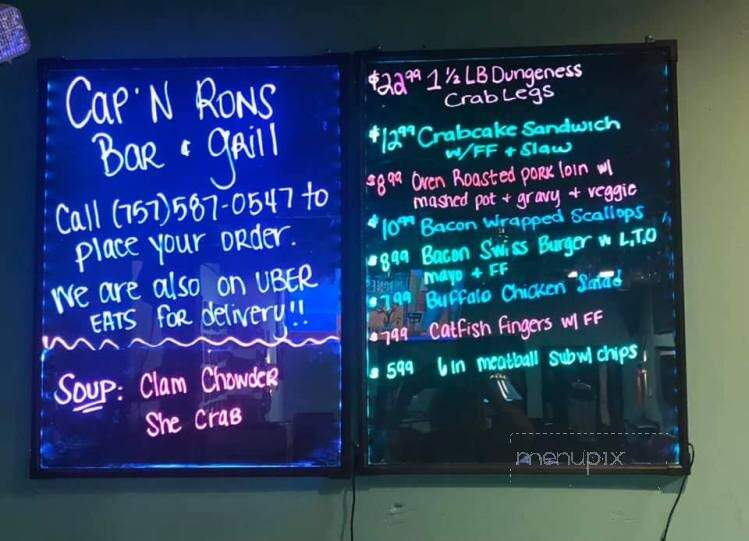 Cap'N Rons
Bar & grill
Call (757)587-0547 to
place your order.
We are also on UBER
EATS for delivery!!
Soup: Clam Chowder
She Crab
$22.99 1 1/2 LB Dungeness
Crab Legs
$12.99 Crabcake Sandwich
w/FF + Slaw
$8.99 Oven Roasted pork loin w/
mashed pot + gravy + veggie
$10.99 Bacon Wrapped Scallops
$8.99 Bacon Swiss Burger w L,T,O
mayo + FF
$7.99 Buffalo Chicken Salad
$7.99 Catfish fingers w/ FF
$5.99 6 in meatball sub w/ chips
menupix